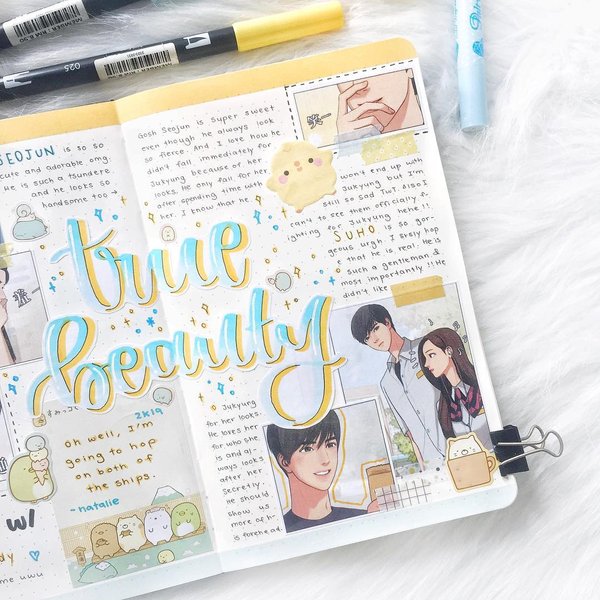 MEMBER BRM 8.50
025
SEOJUN is so so
cute and adorable omg.
He is such a tsundere
and he looks so
handsome too →
Gosh Seojun is super sweet
even though he always look
so fierce. And I love how he
didn't fall immediately for
Jukyung because of her
looks. He only fall for her
after spending time with
her. I know that he
won't end up with
Jukyung but I'm
still so sad TWT. Also I
can't to see them officially f-
ighting for Jukyung hehe!!
SUHO is so gor-
geous urgh I srsly hop
e that he is real. He is
such a gentleman &
most importantly!! He
didn't like
true
beauty
Jukyung
for her looks.
He loves her
for who she
is and al-
ways looks
after her
secretly.
He should
show us
more of h-
is forehead.
2K19
oh well, I'm
going to hop
on both of
the ships.
-natalie
w/
me uwu